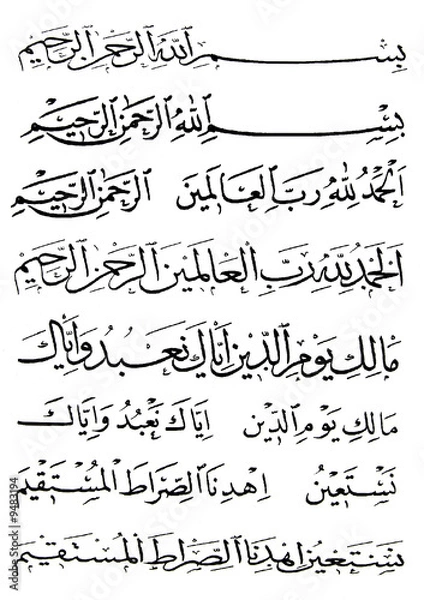 بِسْمِ ٱللَّهِ ٱلرَّحْمَٰنِ ٱلرَّحِيْمِ
بِسْمِ ٱللَّهِ ٱلرَّحْمَٰنِ ٱلرَّحِيْمِ
اَلْحَمْدُ لِلَّهِ رَبِّ ٱلْعَالَمِيْنَ ٱلرَّحْمَٰنِ ٱلرَّحِيْمِ
اَلْحَمْدُ لِلَّهِ رَبِّ ٱلْعَالَمِيْنَ ٱلرَّحْمَٰنِ ٱلرَّحِيْمِ
مَالِكِ يَوْمِ ٱلدِّيْنِ اِيَّاكَ نَعْبُدُ وَاِيَّاكَ
مَالِكِ يَوْمِ ٱلدِّيْنِ اِيَّاكَ نَعْبُدُ وَاِيَّاكَ
نَسْتَعِيْنُ اِهْدِنَا ٱلصِّرَاطَ ٱلْمُسْتَقِيْمَ
نَسْتَعِيْنُ اِهْدِنَا ٱلصِّرَاطَ ٱلْمُسْتَقِيْمَ
Adobe Stock | #9483194